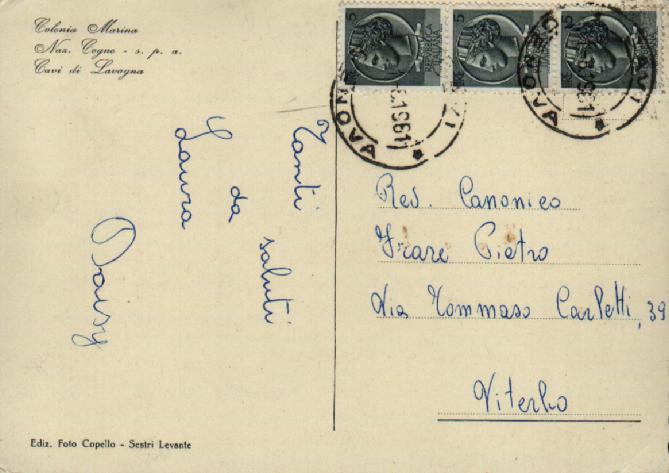 Colonia Marina
Naz. Cogne - s. p. a.
Cavi di Lavagna
Tanti saluti
da
Laura
Daisy
5
5
5
GENOVA
1961
GENOVA
1961
Rev. Canonico
Frare Pietro
Via Tommaso Carletti, 39
Viterbo
Ediz. Foto Copello - Sestri Levante